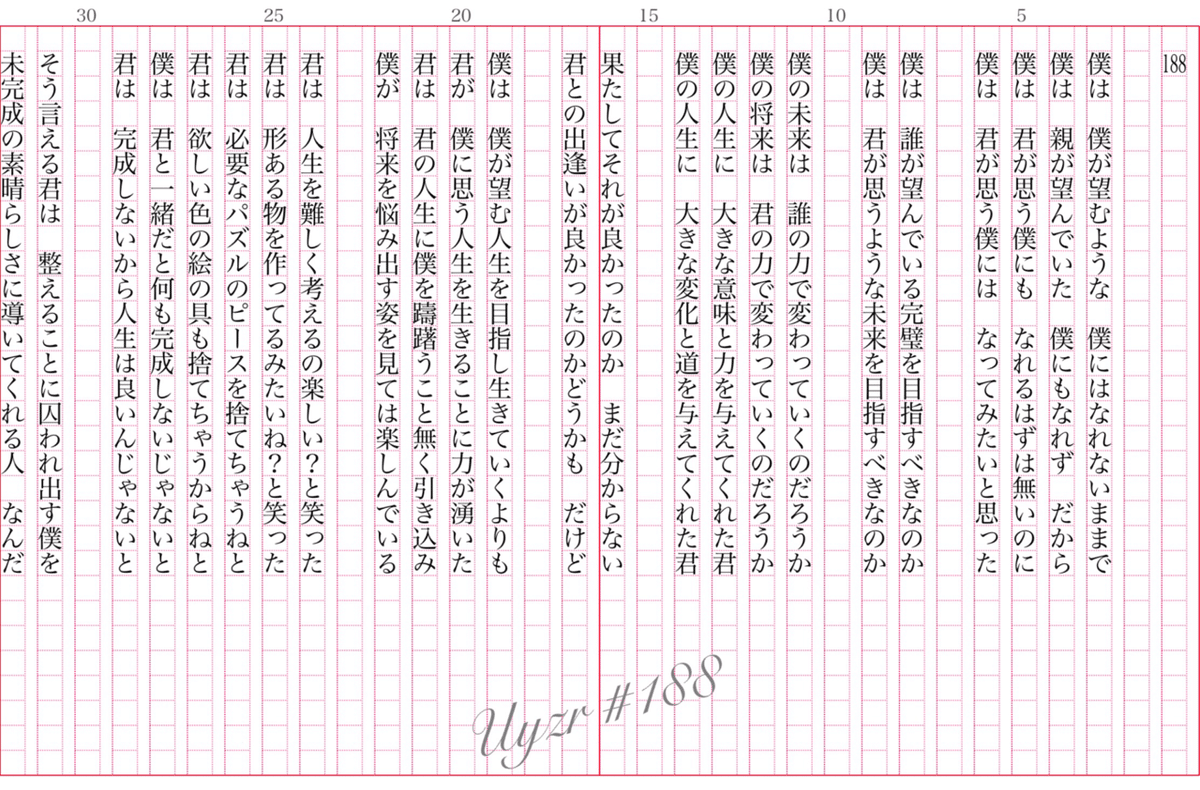 30 25 20 15 10 5
188
僕は　僕が望むような　僕にはなれないままで
僕は　親が望んでいた　僕にもなれず　だから
僕は　君が思う僕にも　なれるはずは無いのに
僕は　君が思う僕には　なってみたいと思った
僕は　誰が望んでいる完璧を目指すべきなのか
僕は　君が思うような未来を目指すべきなのか
僕の未来は　誰の力で変わっていくのだろうか
僕の将来は　君の力で変わっていくのだろうか
僕の人生に　大きな意味と力を与えてくれた君
僕の人生に　大きな変化と道を与えてくれた君
果たしてそれが良かったのか　まだ分からない
君との出逢いが良かったのかどうかも　だけど
僕は　僕が望む人生を目指し生きていくよりも
君が　僕に思う人生を生きることに力が湧いた
君は　君の人生に僕を躊躇うこと無く引き込み
僕が　将来を悩み出す姿を見ては楽しんでいる
君は　人生を難しく考えるの楽しい？と笑った
君は　形ある物を作ってるみたいね？と笑った
君は　必要なパズルのピースを捨てちゃうねと
君は　欲しい色の絵の具も捨てちゃうからねと
僕は　君と一緒だと何も完成しないじゃないと
君は　完成しないから人生は良いんじゃないと
そう言える君は　整えることに囚われ出す僕を
未完成の素晴らしさに導いてくれる人　なんだ
Uyzr #188